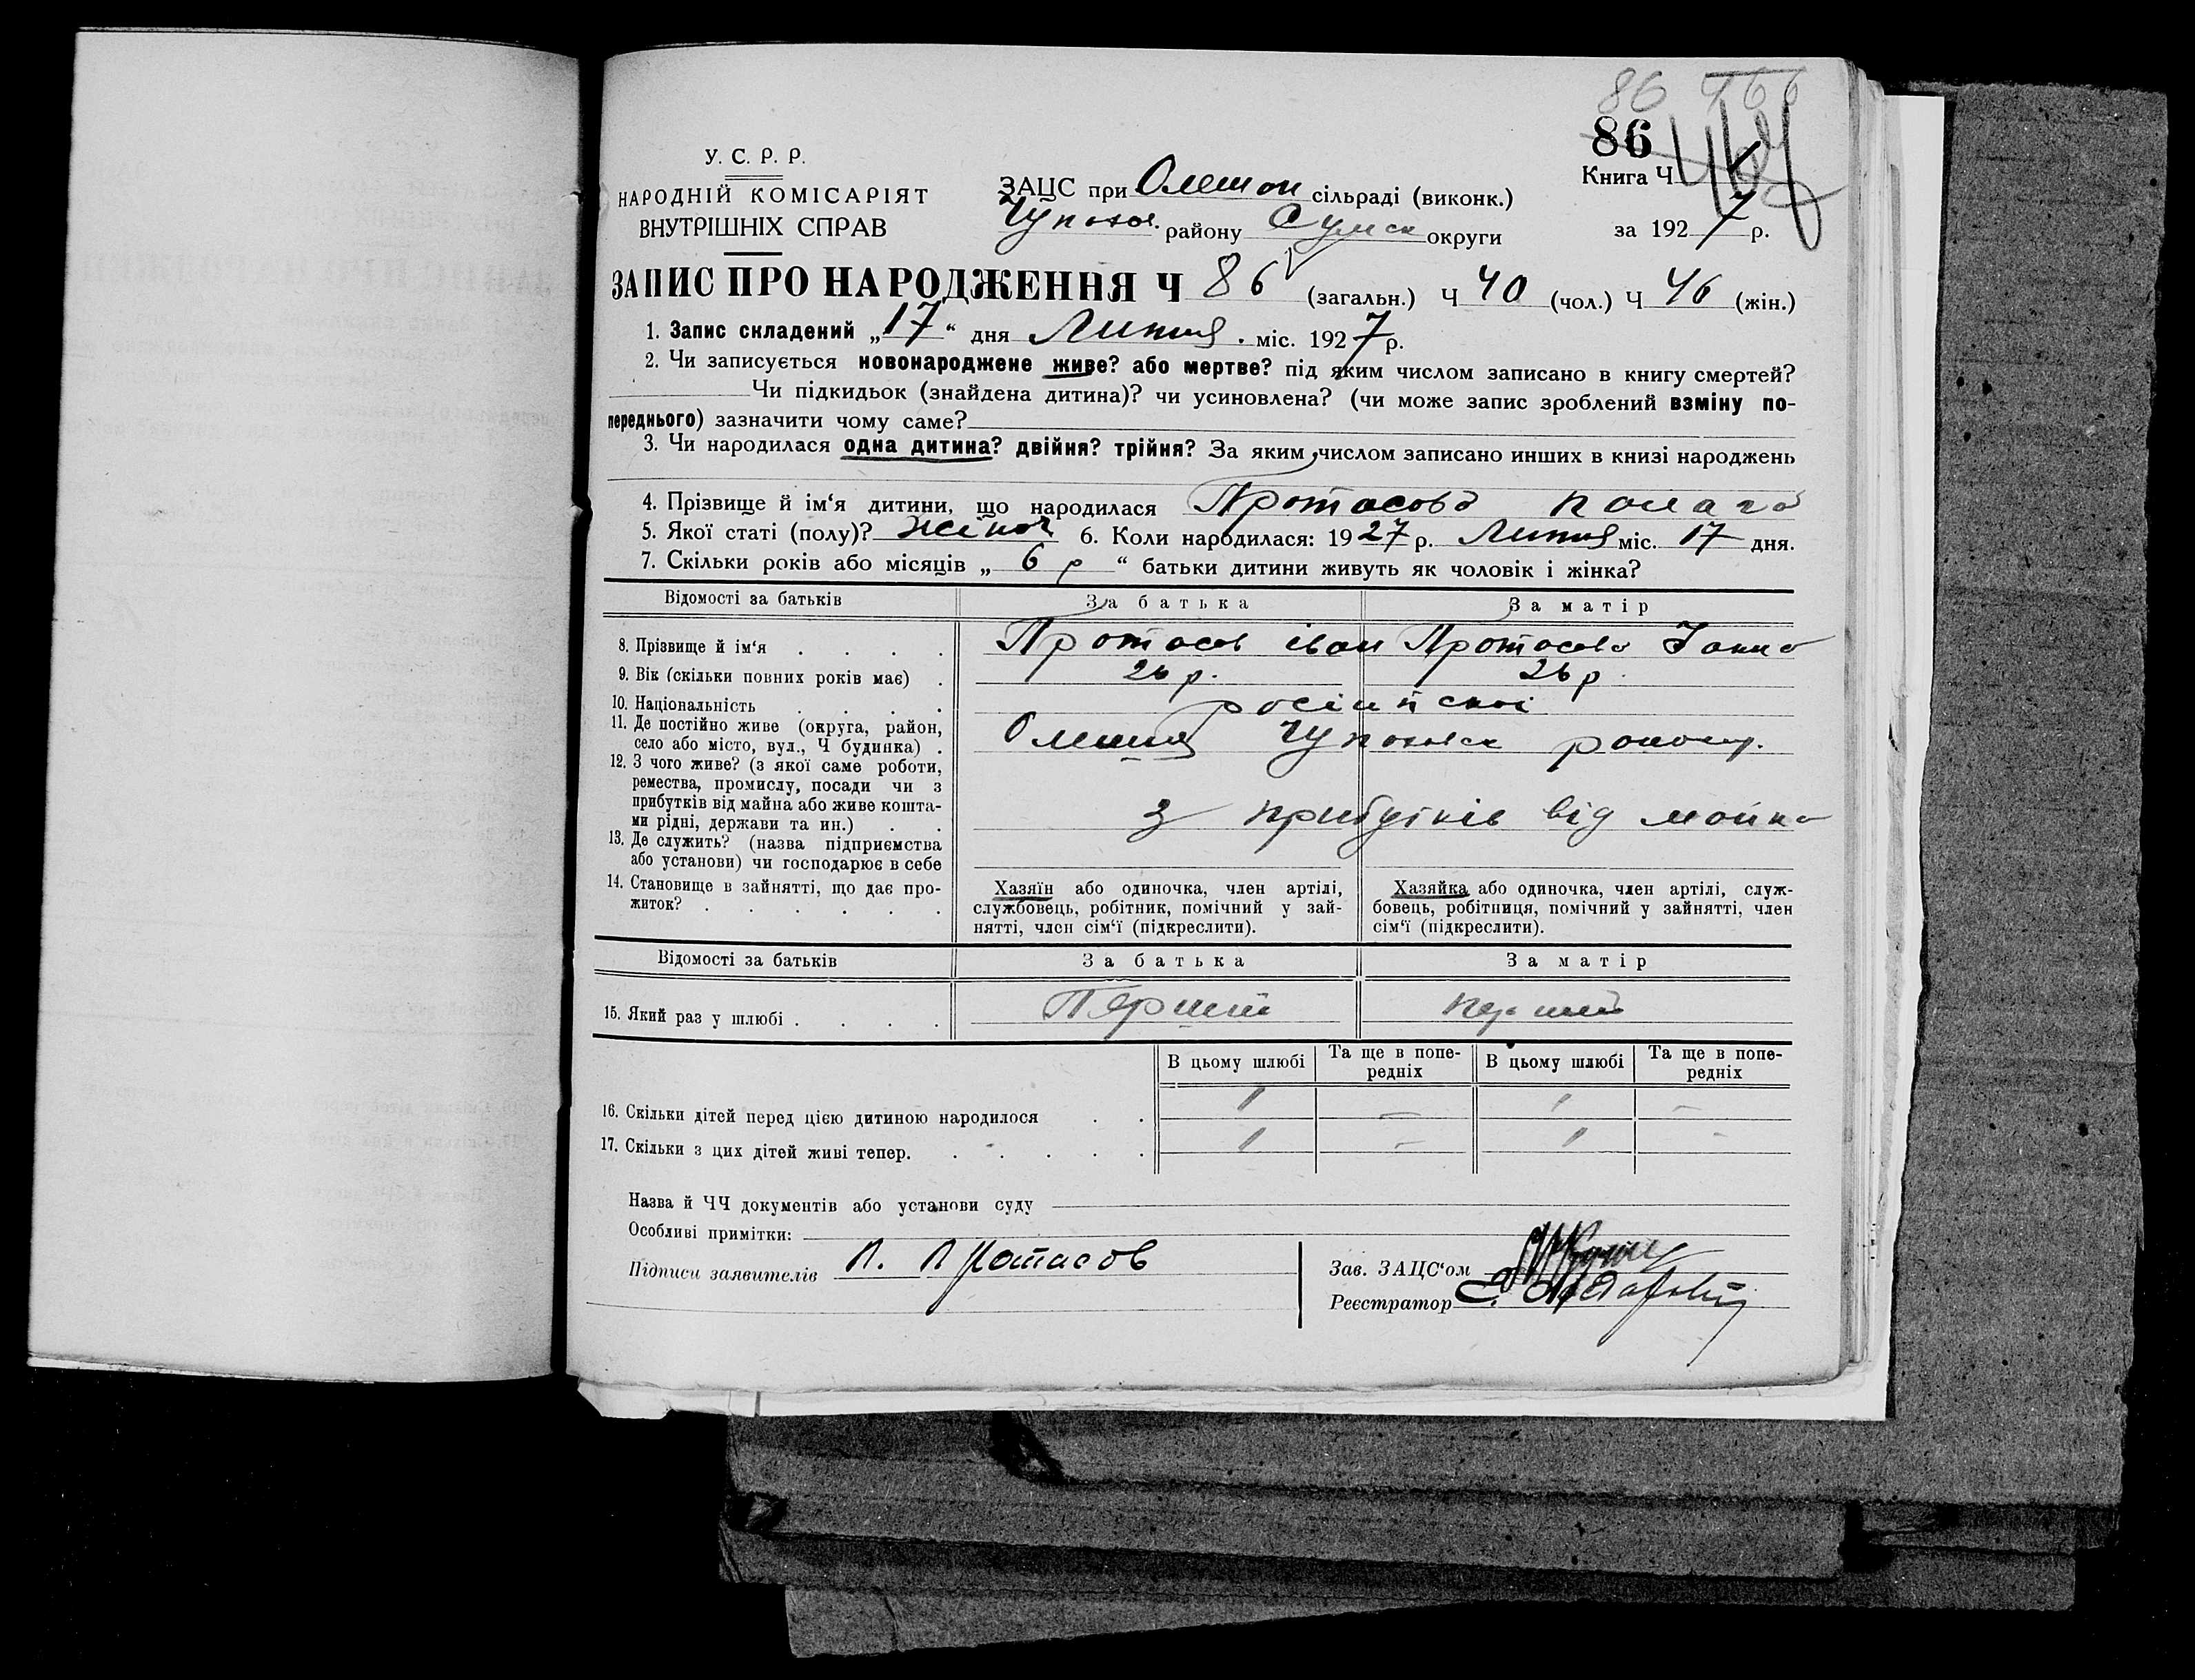 86 466
86
У. С. Р. Р.
НАРОДНІЙ КОМІСАРІЯТ
ВНУТРІШНІХ СПРАВ
ЗАЦС при Олешон сільраді (виконк.)
Чупахов. району Сумск округи
Книга Ч
за 1927 р.
ЗАПИС ПРО НАРОДЖЕННЯ Ч 86 (загальн.) Ч 40 (чол.) Ч 46 (жін.)
1. Запис складений „17“ дня Липня. міс. 1927 р.
2. Чи записується новонароджене живе? або мертве? під яким числом записано в книгу смертей?
Чи підкидьок (знайдена дитина)? чи усиновлена? (чи може запис зроблений взміну по-
переднього) зазначити чому саме?
3. Чи народилася одна дитина? двійня? трійня? За яким числом записано инших в книзі народжень
4. Прізвище й ім‘я дитини, що народилася Протасова
5. Якої статі (полу)? жіноч 6. Коли народилася: 1927 р. Липня міс. 17 дня.
7. Скільки років або місяців „ 6 р “ батьки дитини живуть як чоловік і жінка?
Відомості за батьків За батька За матір
8. Прізвище й ім‘я . . . . Протасов іван Протасова Ганна
9. Вік (скільки повних років має) . 26 р. 26 р.
10. Національність . . . . росіийскої
11. Де постійно живе (округа, район,
село або місто, вул., Ч будинка) . Олешня Чупахівск району.
12. З чого живе? (з якої саме роботи,
ремества, промислу, посади чи з
прибутків від майна або живе кошта-
ми рідні, держави та ин.) . . З прибутків від майна
13. Де служить? (назва підприємства
або установи) чи господарює в себе
14. Становище в зайнятті, що дає про-
житок? . . . . . .
Хазяїн або одиночка, член артілі,
службовець, робітник, помічний у зай-
нятті, член сім‘ї (підкреслити).
Хазяйка або одиночка, член артілі, служ-
бовець, робітниця, помічний у зайнятті, член
сім‘ї (підкреслити).
Відомості за батьків За батька За матір
15. Який раз у шлюбі . . . . Перший перший
В цьому шлюбі Та ще в попе-редніх В цьому шлюбі Та ще в попе-редніх
16. Скільки дітей перед цією дитиною народилося . . 1 – 1 –
17. Скільки з цих дітей живі тепер. . . . . . 1 – 1 –
Назва й ЧЧ документів або установи суду
Особливі примітки:
Підписи заявителів П. Протасов
Зав. ЗАЦС‘ом
Реєстратор